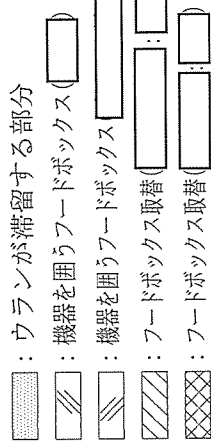 ：ウランが滞留する部分
：機器を囲うフードボックス（
：機器を囲うフードボックス
：フードボックス取替（
：フードボックス取替（